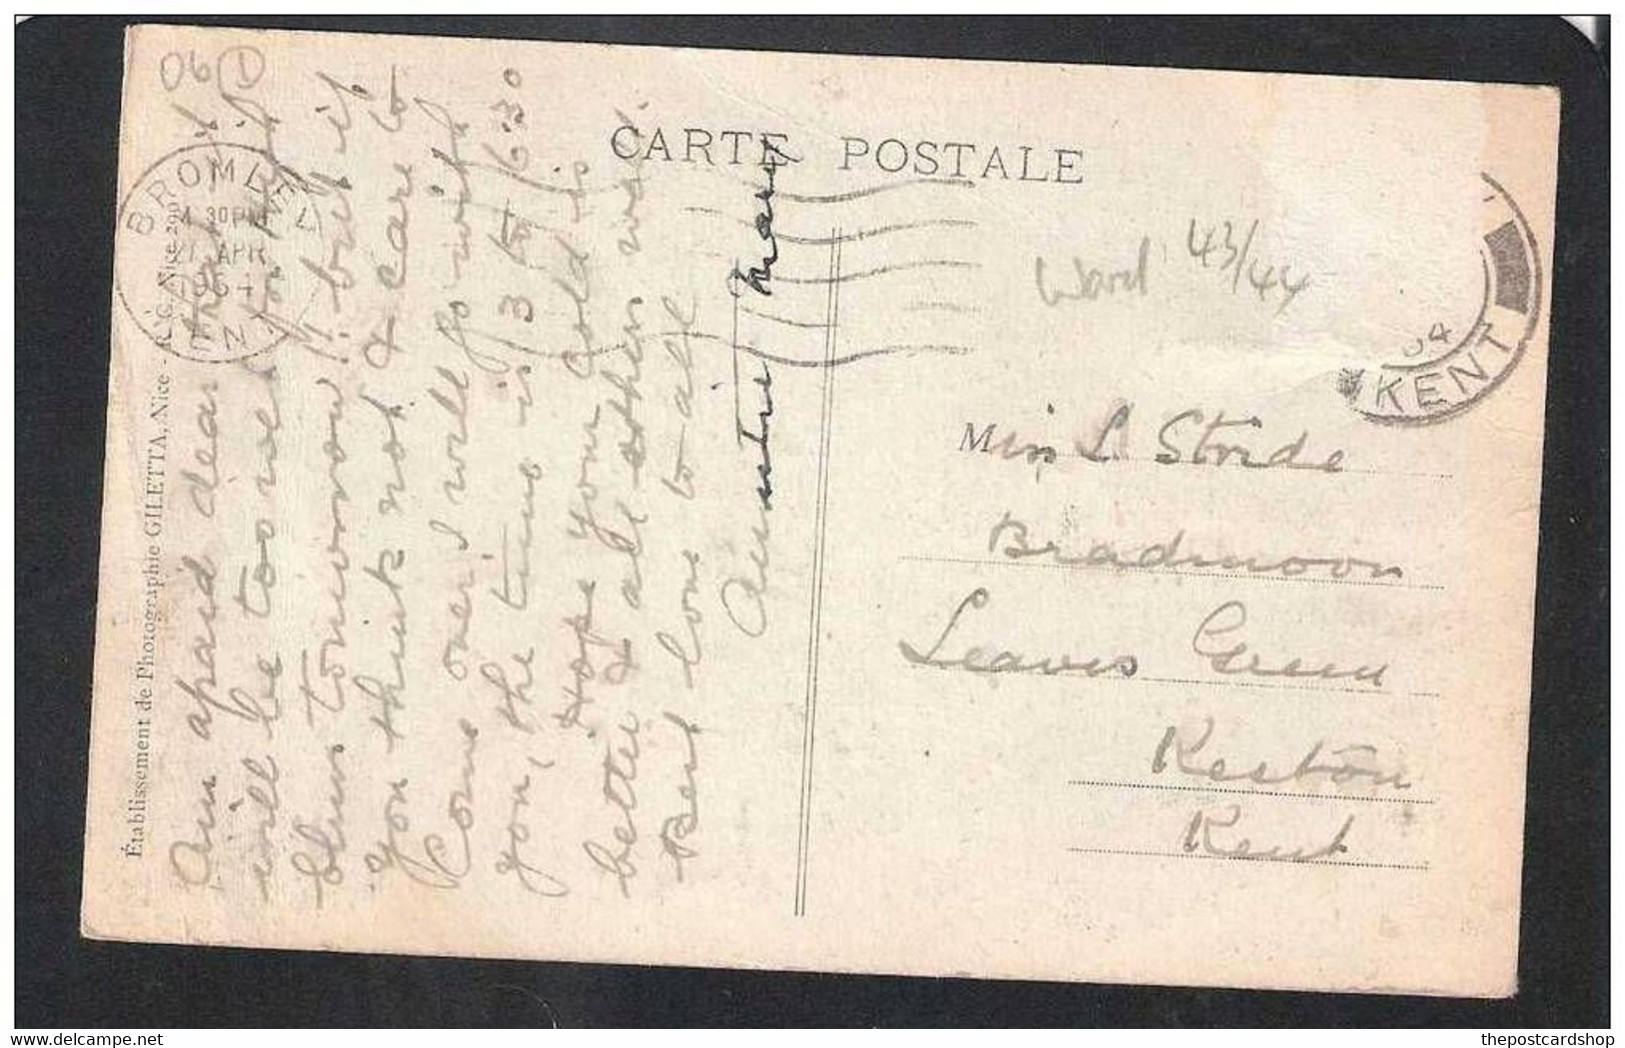 CARTE POSTALE
BROMLEY
30 PM
APR
KENT
Ward 43/44
Miss L. Stride
Bradmoor
Leaves Green
Keston
Kent
Am afraid dear that it
will be too wet for
tomorrow!! but if
you think not & care to
Come over I will go with
you, the time is 3 to 6.30
Hope your cold is
better & all others well
Best love to all
Auntie Mary
Établissement de Photographie GILETTA, Nice
06
thepostcardshop